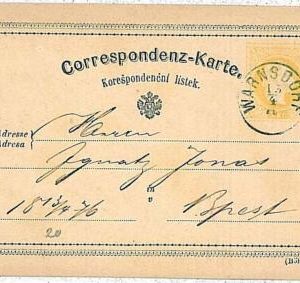 Correspondenz-Karte.
Korešpondenční lístek.
WARNSDORF
13
4
Adresse
Adresa
Herrn
Ignatz Jonas
in
v
18 13/4 76
Bpest
20
(Bö